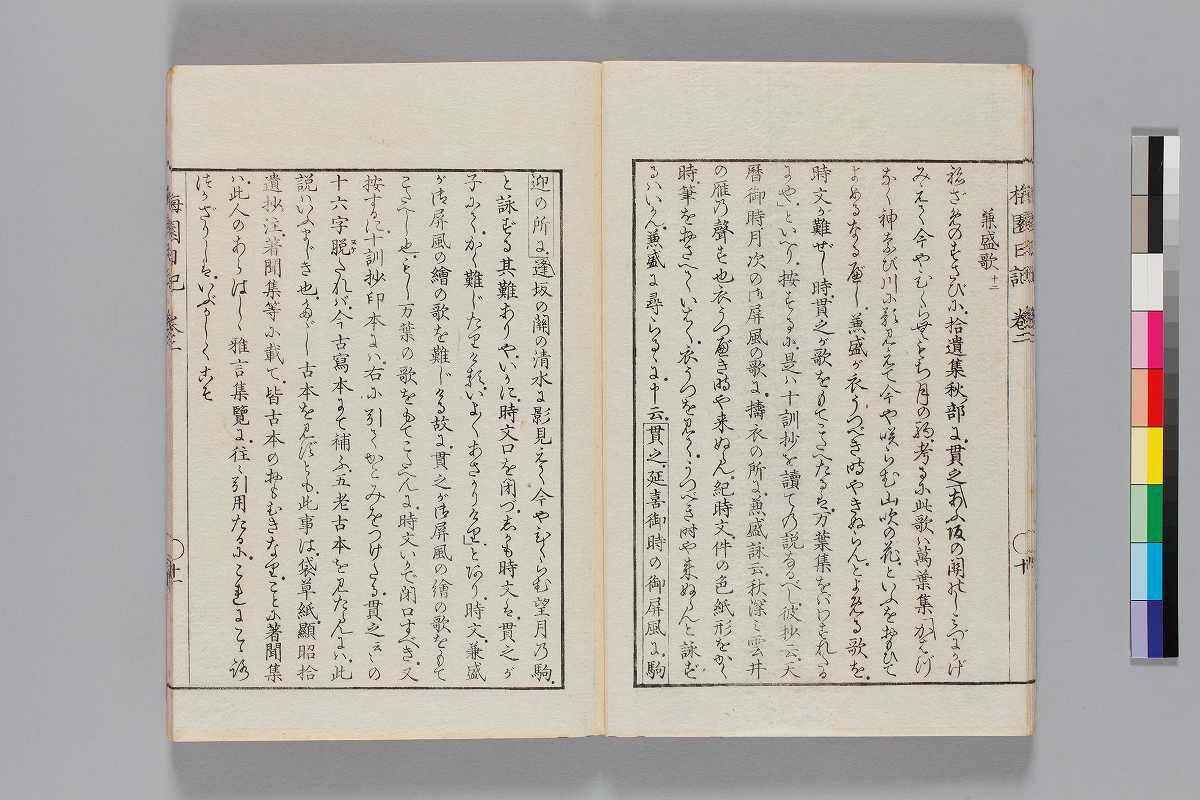 梅園日記 卷二 十
兼盛歌 十二
ねざめのすさびに拾遺集秋部に貫之あふ坂の關のし水にかげ
みえて今やひくらむもち月の駒考るに此歌ハ萬葉集「かはづ
なく神なび川に影みえて今や咲らむ山吹の花といふをおもひて
よめるなるべし兼盛が衣うつべき時やきぬらんとよめる歌を
時文が難ぜし時貫之が歌をもてこたへたるは万葉集をバわすれたる
にや」といへり按ずるに是ハ十訓抄を讀ての説なるべし彼抄云天
暦御時月次の御屏風の歌に擣衣の所に兼盛詠云秋深き雲井
の雁乃聲す也衣うつべき時や来ぬらん紀時文件の色紙形をかく
時筆をおさへていはく衣うつをみてうつべき時や来ぬらんと詠ず
るハいかん兼盛に尋らるゝに申云貫之延喜御時の御屏風に駒
迎の所に逢坂の關の清水に影見えて今やひくらむ望月乃駒
と詠ずる其難ありやいかに時文口を閉づしかも時文は貫之が
子にてかく難じたりけるいよ〳〵あさかりけり」とあり時文兼盛
が御屏風の繪の歌を難じける故に貫之が御屏風の繪の歌をもて
こたへし也もし万葉の歌をもてこたへんに時文いかで閉口すべき又
按するに十訓抄印本にハ右に引るかとみをつけたる貫之云々の
十六字脱たれバ今古寫本にて補ふ五老古本をみたらんにハ此
説ハいふまじき也但し古本をみずとも此事は袋草紙顯昭拾
遺抄注著聞集等に載て皆古本のおもむきなりことに著聞集
ハ此人のあらはしゝ雅言集覽に往々引用たるにこれにこゝろ
づかざりしはいぶかしくこそ
梅園日記 卷二 十一